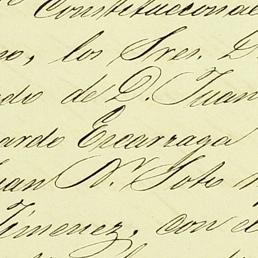 Constitucional
no, los Sres. D
do de D. Juan
ardo Escarraga
uan N. Soto
Jimenez, con el